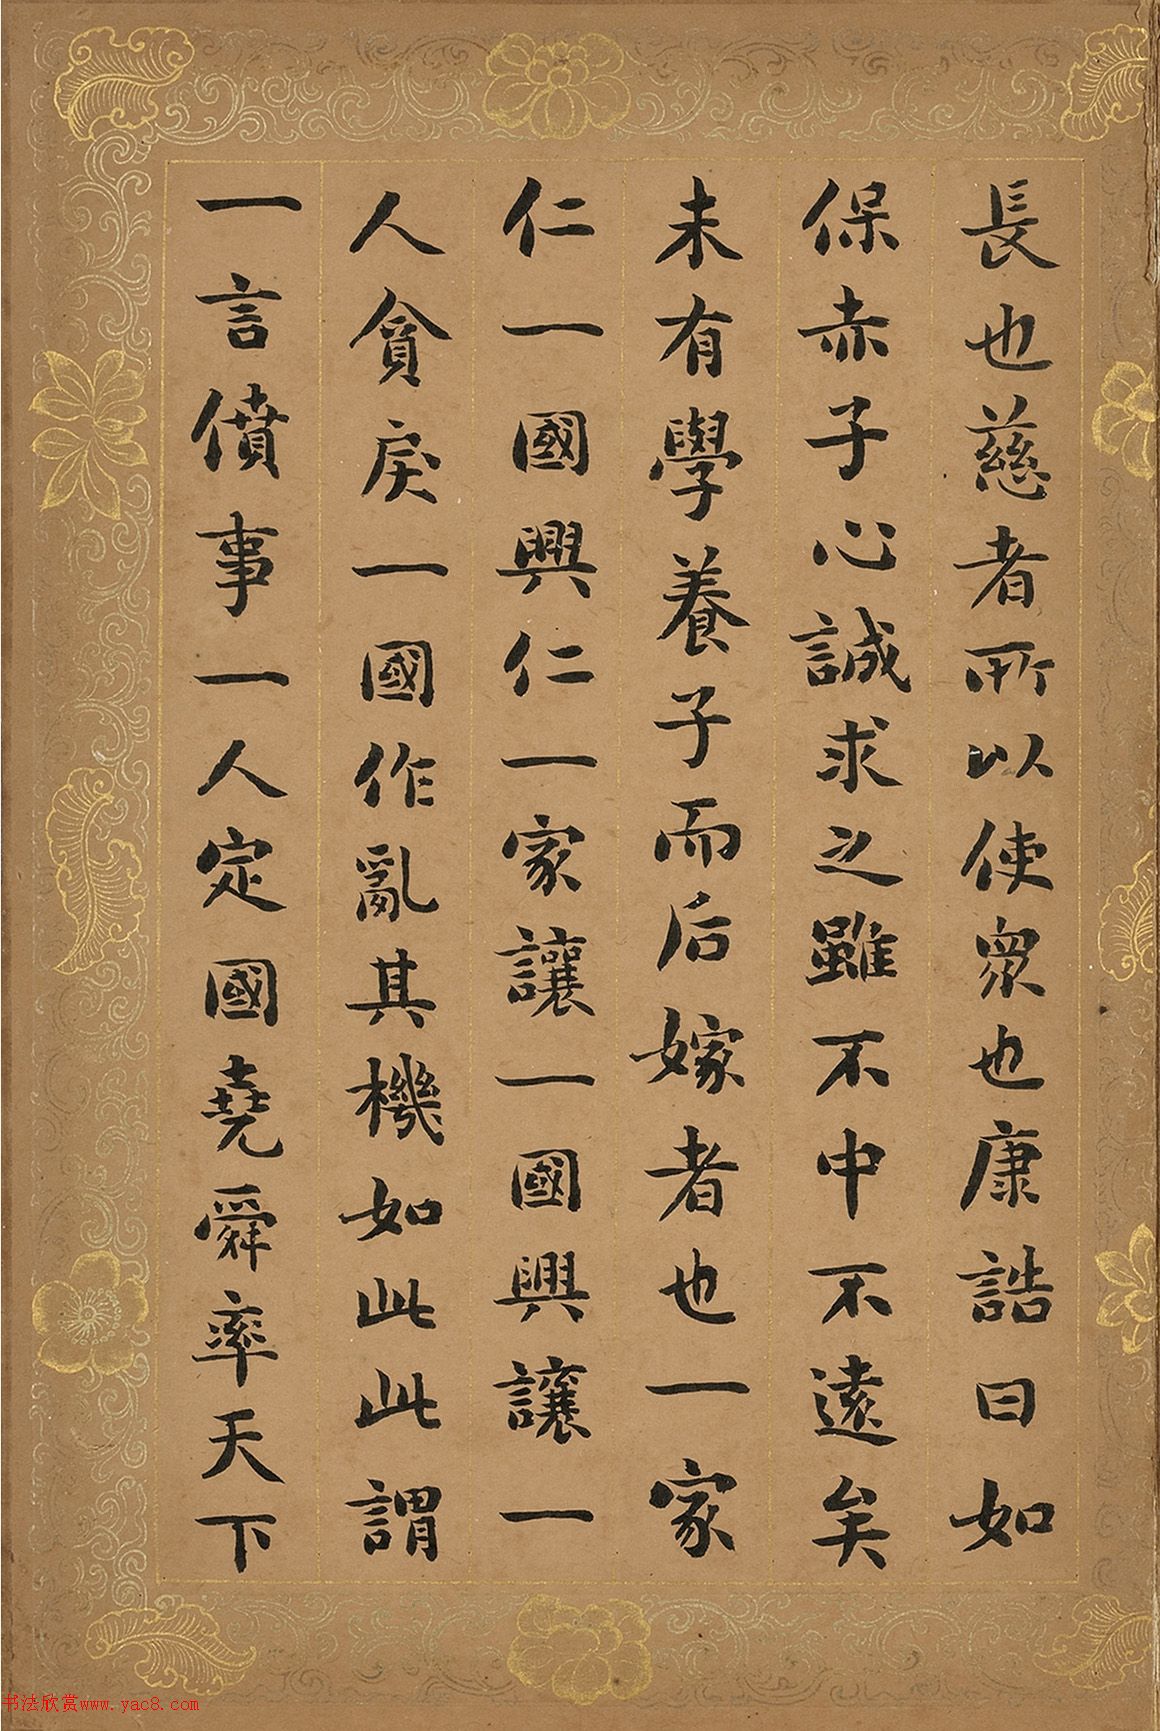 長也慈者所以使衆也康誥曰如
保赤子心誠求之雖不中不遠矣
未有學養子而后嫁者也一家
仁一國興仁一家讓一國興讓一
人貪戾一國作亂其機如此此謂
一言僨事一人定國堯舜率天下
书法欣赏www.yac8.com